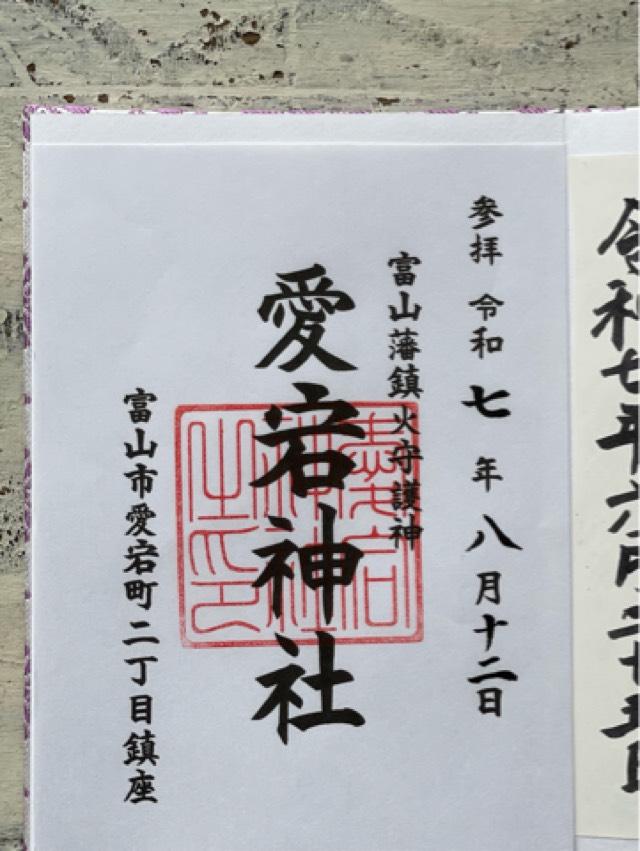 令和七年六月二十五日
参拝 令和七年八月十二日
富山藩鎮火守護神
愛宕神社
愛宕神社之印
富山市愛宕町二丁目鎮座